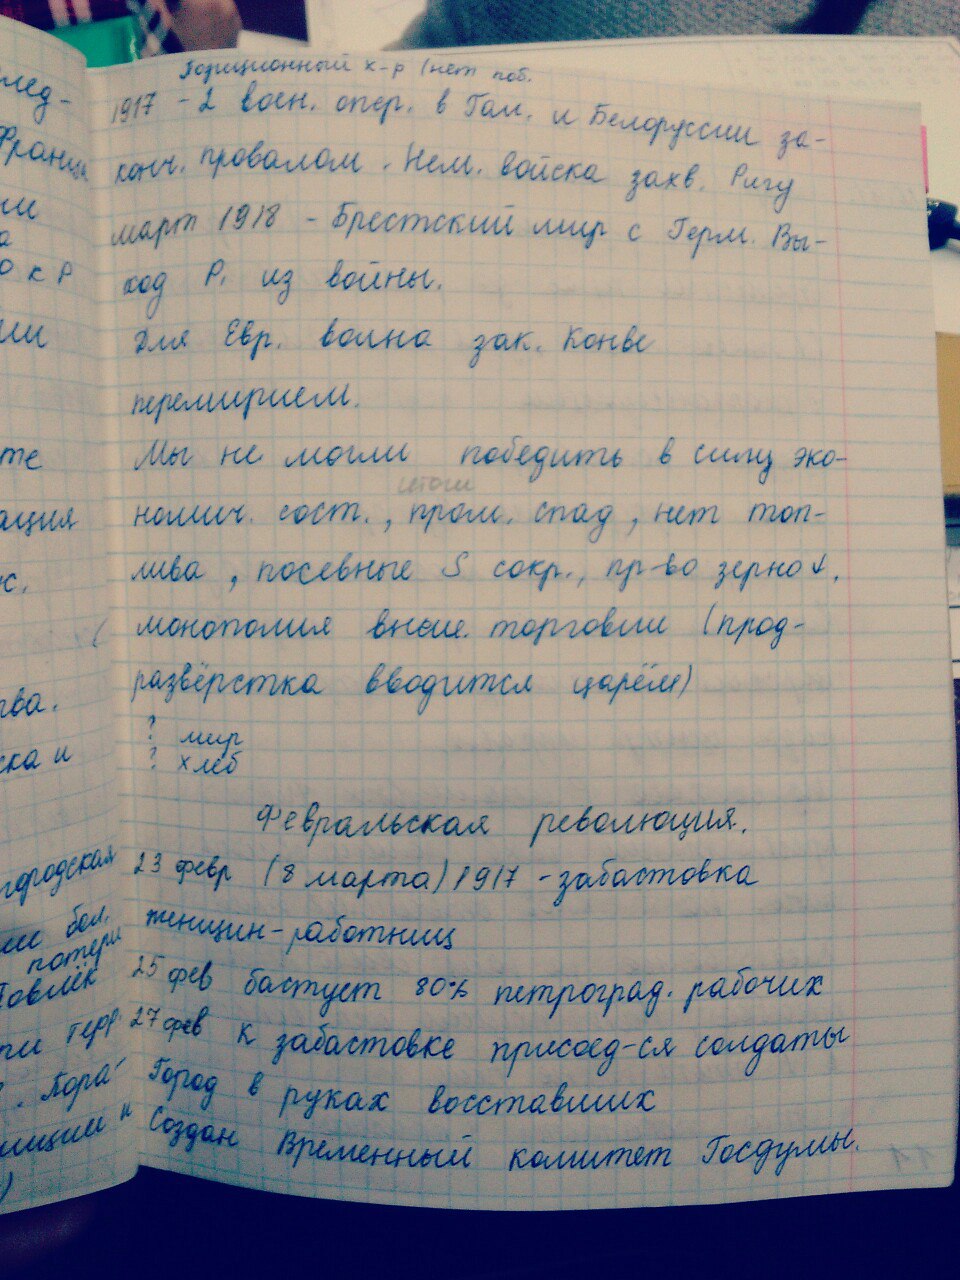 Позиционный х-р (нет поб.
1917 - 2 воен. опер. в Гал. и Белоруссии за-
конч. провалом. Нем. войска захв. Ригу
март 1918 - Брестский мир с Герм. Вы-
ход Р. из войны.
Для Евр. война зак. Конве
перемирием.
Мы не могли победить в силу эко-
итоги
номич. сост., пром. спад, нет топ-
лива, посевные S сокр., пр-во зерно↓.
монополия внеш. торговли (прод-
развёрстка вводится царём)
? мир
? хлеб
Февральская революция.
23 февр (8 марта) 1917 - забастовка
женщин-работниц
25 фев бастует 80% петроград. рабочих
27 фев к забастовке присоед-ся солдаты
Город в руках восставших
Создан Временный комитет Госдумы.